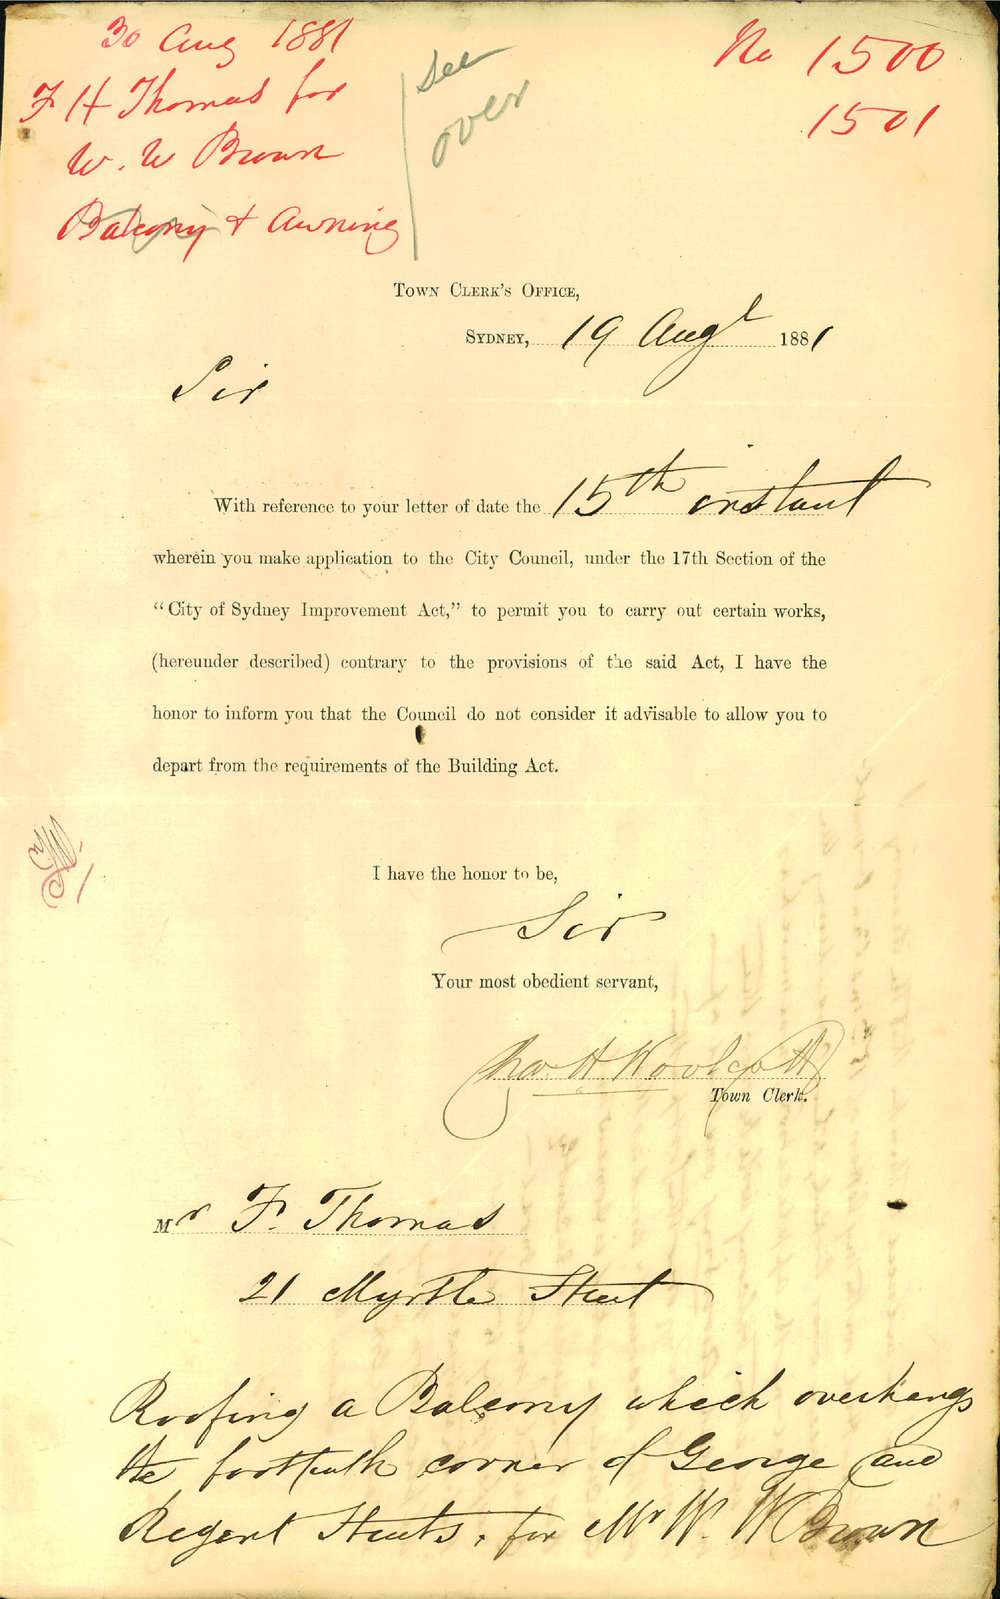 30 Aug 1881
F H Thomas for
W. W Brown
Balcony & Awning
See
over
No 1500
1501
TOWN CLERK'S OFFICE,
SYDNEY, 19 Augt 1881
Sir
With reference to your letter of date the 15th instant
wherein you make application to the City Council, under the 17th Section of the
"City of Sydney Improvement Act," to permit you to carry out certain works,
(hereunder described) contrary to the provisions of the said Act, I have the
honor to inform you that the Council do not consider it advisable to allow you to
depart from the requirements of the Building Act.
I have the honor to be,
Sir
Your most obedient servant,
Chas. H Woolcott
Town Clerk.
Mr F. Thomas
21 Myrtle Street
Roofing a Balcony which overhangs
the footpath corner of George and
Regent Streets, for Mr W. W Brown